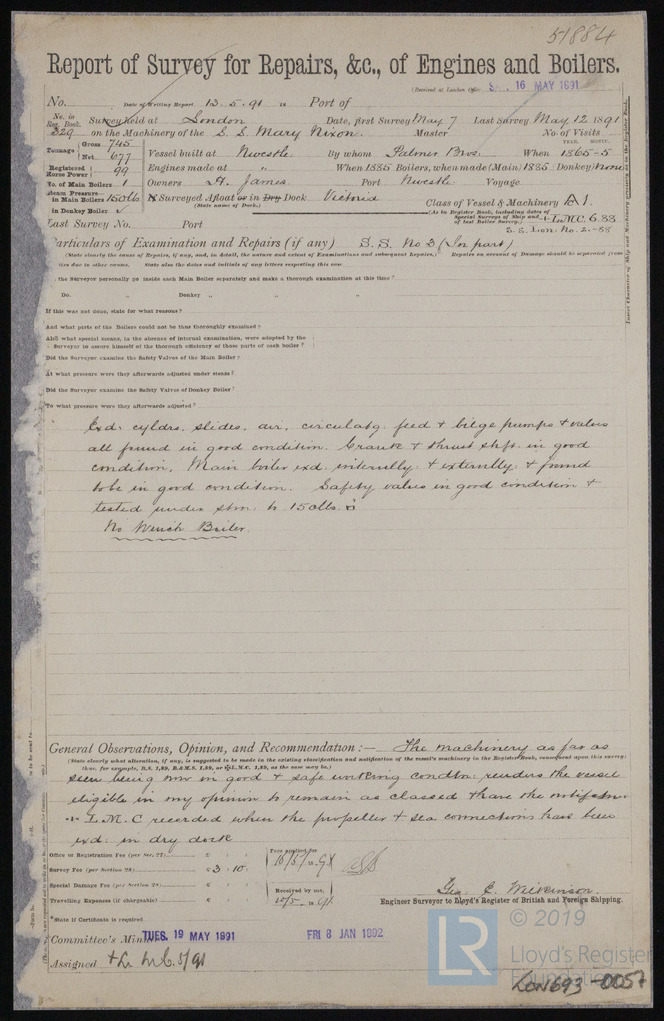 51884
Report of Survey for Repairs, &c., of Engines and Boilers.
(Received at London Office 16 MAY 1891
No. Date of Writing Report 13.5.91 Port of
No. in Reg. Book. 329 Survey held at London Date, first Survey May 7 Last Survey May 12 1891
on the Machinery of the S.S. Mary Nixon. Master No. of Visits
Tonnage Gross 745 Net 677 Vessel built at Nwcstle By whom Palmer Bros. When 1865-5
Registered Horse Power 99 Engines made at " When 1885 Boilers, when made (Main) 1885 Donkey) None
No. of Main Boilers 1 Owners H. James Port Nwcstle Voyage
Steam Pressure in Main Boilers 150lbs Surveyed Afloat or in Dry Dock Victoria
(State name of Dock.)
in Donkey Boiler ✓ Class of Vessel & Machinery A1.
(As in Register Book, including dates of Special Surveys of Ship and of last Boiler Survey.) + L.M.C. 6.88
Last Survey No. Port S.S. Lon: No. 2.-88
Particulars of Examination and Repairs (if any) S.S. No 3 (In part)
(State clearly the cause of Repairs, if any, and, in detail, the nature and extent of Examinations and subsequent Repairs.) Repairs on account of Damage should be separated from
due to other causes. State also the dates and initials of any letters respecting this case
the Surveyor personally go inside each Main Boiler separately and make a thorough examination at this time?
Do. " Donkey " " "
If this was not done, state for what reasons?
And what parts of the Boilers could not be thus thoroughly examined?
And what special means, in the absence of internal examination, were adopted by the
Surveyor to assure himself of the thorough efficiency of those parts of each boiler?
Did the Surveyor examine the Safety Valves of the Main Boiler?
At what pressure were they afterwards adjusted under steam?
Did the Surveyor examine the Safety Valves of Donkey Boiler?
To what pressure were they afterwards adjusted?
Exd: cyldrs, slides, air, circulatg. feed & bilge pumps & valves
all found in good condition. Crank & thrust shft. in good
condition, Main boiler exd. internlly: & externlly: & found
to be in good condition. Safety valves in good condition &
tested under stm: to 150lbs.
No Winch Boiler.
General Observations, Opinion, and Recommendation:— The machinery as far as
(State clearly what alteration, if any, is suggested to be made in the existing classification and notification of the vessel's machinery in the Register Book, consequent upon this survey;
thus, for example, B.S. 1,89, B.&M.S. 1,89, or L.M.C. 1,89, as the case may be.)
seen being now in good & safe working condtn: renders the vessel
eligible in my opinion to remain as classed & have the notifctn.
+ L.M.C recorded when the propeller & sea connections have been
exd: in dry dock
Office or Registration Fee (per Sec. 27) £ : :
Survey Fee (per Section 28) £ 3 : 10 :
Special Damage Fee (per Section 28) £ : :
Travelling Expenses (if chargeable) £ : :
Fees applied for
16/5/1891
Received by me,
Geo. E. Wilkinson.
Engineer Surveyor to Lloyd's Register of British and Foreign Shipping.
*State if Certificate is required.
Committee's Minute TUES. 19 MAY 1891 FRI 8 JAN 1892
Assigned + L.M.C. 5/91
Insert Character of Ship and Machinery precisely as in the Register Book.
LR
© 2019
Lloyd's Register
Foundation
LON693-0057